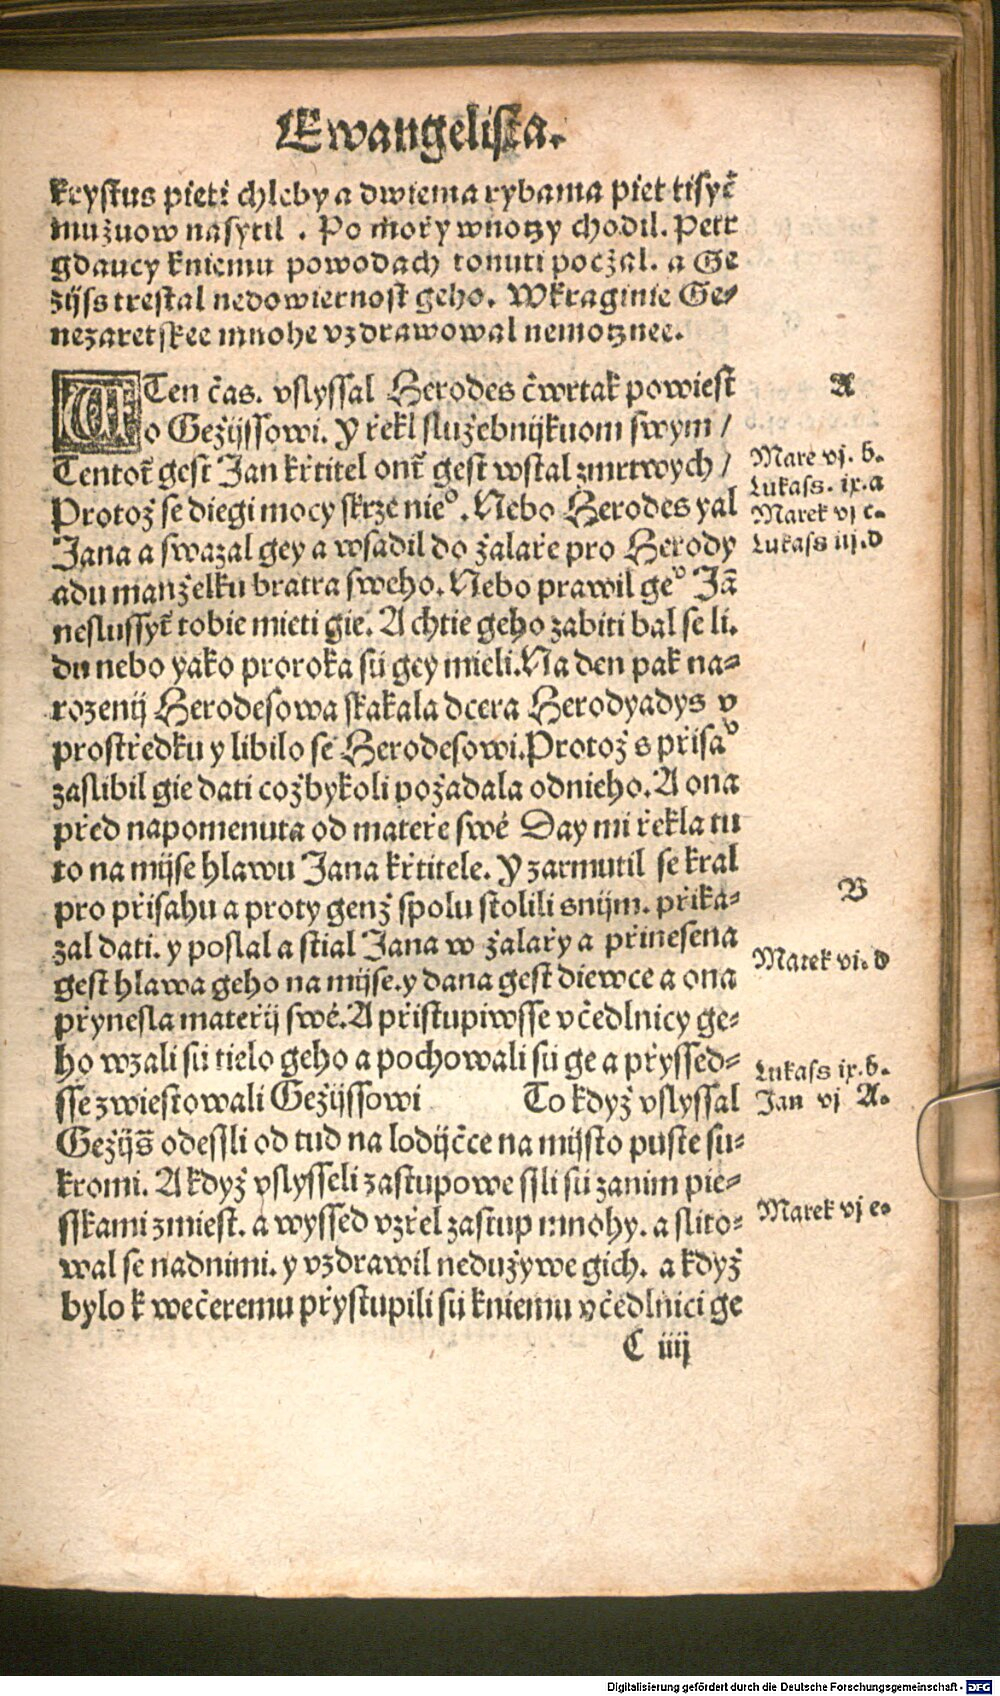 Ewangelista.
krystus pieti chleby a dwiema rybama piet tisyč
mužuow nasytil . Po mořy wnotzy chodil. Petr
gdaucy kniemu powodach tonuti počžal. a Ge
žijss trestal nedowiernost geho. Wkraginie Ge⸗
nezaretskee mnohe vzdrawowal nemotznee.
WTen čas. vslyssal Herodes čwrtak powiest
o Gežijssowi. Y řekl služebnijkuom swym /
Tentoť gest Jan křtitel onť gest wstal zmrtwych /
Protož se diegi mocy skrze nieº. Nebo Herodes yal
Jana a swazal gey a wsadil do žalaře pro Herody
adu manželku bratra sweho. Nebo prawil geº Jā
neslussyť tobie mieti gie. A chtie geho zabiti bal se li.
du nebo yako proroka sú gey mieli. Na den pak na⸗
rozenij Herodesowa skakala dcera Herodyadys v
prostředku y libilo se Herodesowi. Protož s přisaº
zaslibil gie dati cožbykoli požadala odnieho. A ona
před napomenuta od mateře swé Day mi řekla tu
to na mijse hlawu Jana křtitele. Y zarmutil se kral
pro přisahu a proty genž spolu stolili snijm. přika⸗
zal dati. y poslal a stial Jana w žalařy a přinesena
gest hlawa geho na mijse. y dana gest diewce a ona
přynesla mateřij swé. A přistupiwsse včedlnicy ge⸗
ho wzali sú tielo geho a pochowali sú ge a přyssed⸗
sse zwiestowali Gežijssowi To když vslyssal
Gežijš odessli od tud na lodijčce na mijsto puste su⸗
kromi. A když vslysseli zastupowe ssli sú zanim pie⸗
sskami zmiest. a wyssed vzřel zastup mnohy. a slito⸗
wal se nadnimi. y vzdrawil nedužywe gich. a když
bylo k wečeremu přystupili sú kniemu včedlnici ge
C iiij
A
Mare vj. b.
Lukass. ix. a
Marek vj c.
Lukass iij. d
B
Marek vi. d
Lukass ix. b.
Jan vj A.
Marek vj e.
Digitalisierung gefördert durch die Deutsche Forschungsgemeinschaft - DFG